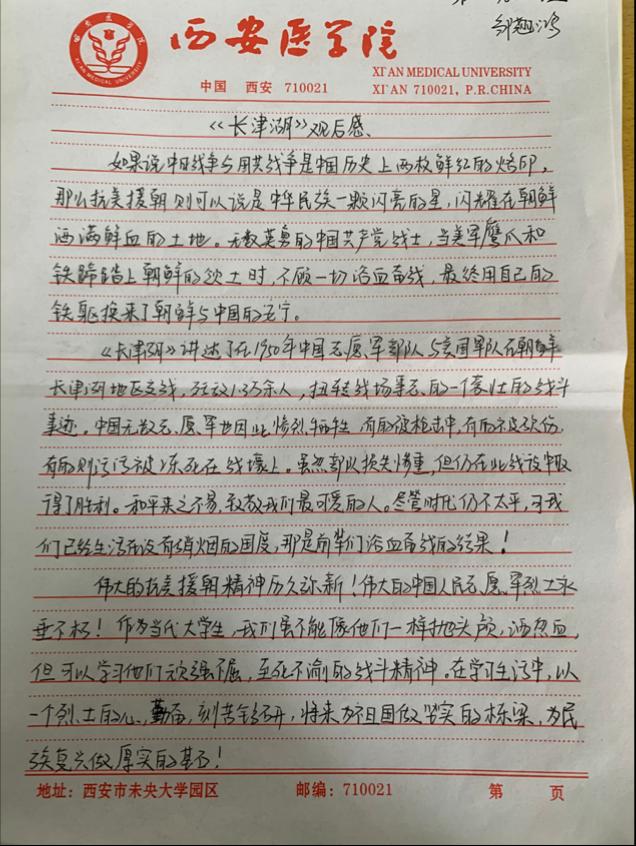 邹翘鸿
西安医学院
XI'AN MEDICAL UNIVERSITY
中国 西安 710021
XI'AN MEDICAL UNIVERSITY
XI'AN 710021, P.R.CHINA
《长津湖》观后感、
如果说中日战争与国共战争是中国历史上两枚鲜红的烙印,
那么抗美援朝则可以说是中华民族一颗闪亮的星,闪耀在朝鲜
洒满鲜血的土地。无数英勇的中国共产党战士,当美军鹰爪和
铁蹄踏上朝鲜的领土时,不顾一切浴血奋战,最终用自己的
铁躯换来了朝鲜与中国的安宁。
《长津湖》讲述了在1950年中国志愿军部队与美国军队在朝鲜
长津湖地区交战,歼敌1.3万余人,扭转战场事态的一个豪壮的战斗
事迹。中国无数志愿军也因此惨烈牺牲,有的被枪击中,有的被炸伤,
有的则活活被冻死在战壕上。虽然部队损失惨重,但仍在此战役中取
得了胜利。和平来之不易,致敬我们最可爱的人。尽管时代仍不太平,可我
们已经生活在没有硝烟的国度,那是前辈们浴血奋战的结果!
伟大的抗美援朝精神历久弥新!伟大的中国人民志愿军烈士永
垂不朽!作为当代大学生,我们虽不能像他们一样抛头颅,洒热血,
但可以学习他们顽强不屈,至死不渝的战斗精神。在学习生活中,以
一个烈士的心,勤奋,刻苦钻研,将来为祖国做坚实的栋梁,为民
族复兴做厚实的基石!
地址:西安市未央大学园区 邮编:710021 第 页